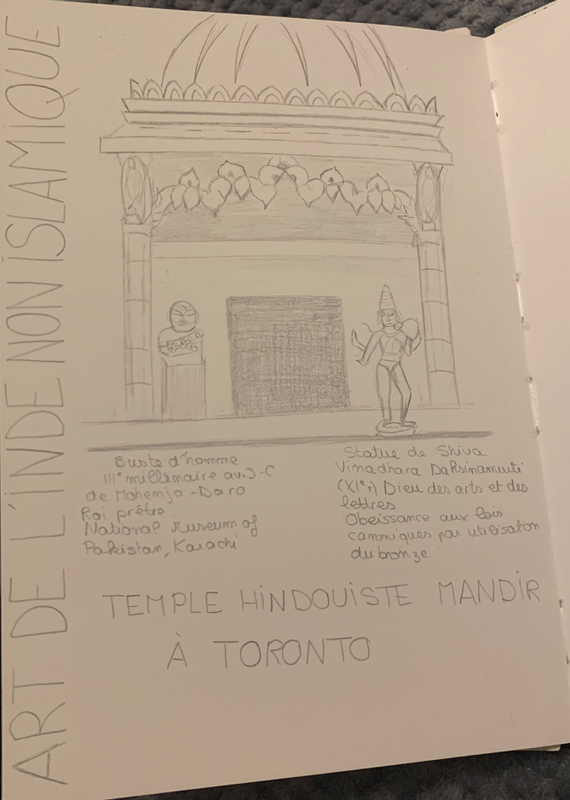 ART DE L'INDE NON ISLAMIQUE
Buste d'homme
IIIe millénaire av. J-C
de Mohenjo-Daro
Roi prêtre
National Museum of
Pakistan, Karachi
Statue de Shiva
Vinadhara Daksinamurti
(XIes) Dieu des arts et des
lettres
Obeissance aux lois
canoniques par utilisation
du bronze
TEMPLE HINDOUISTE MANDIR
À TORONTO